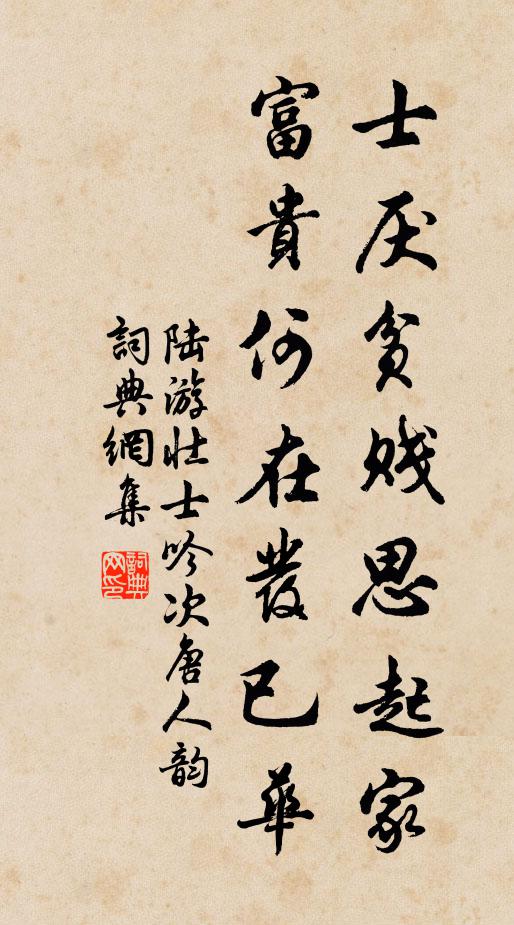 士厌贫贱思起家
富貴何在发已華
陆游壮士吟次唐人韵
詞典網集
詞典网印